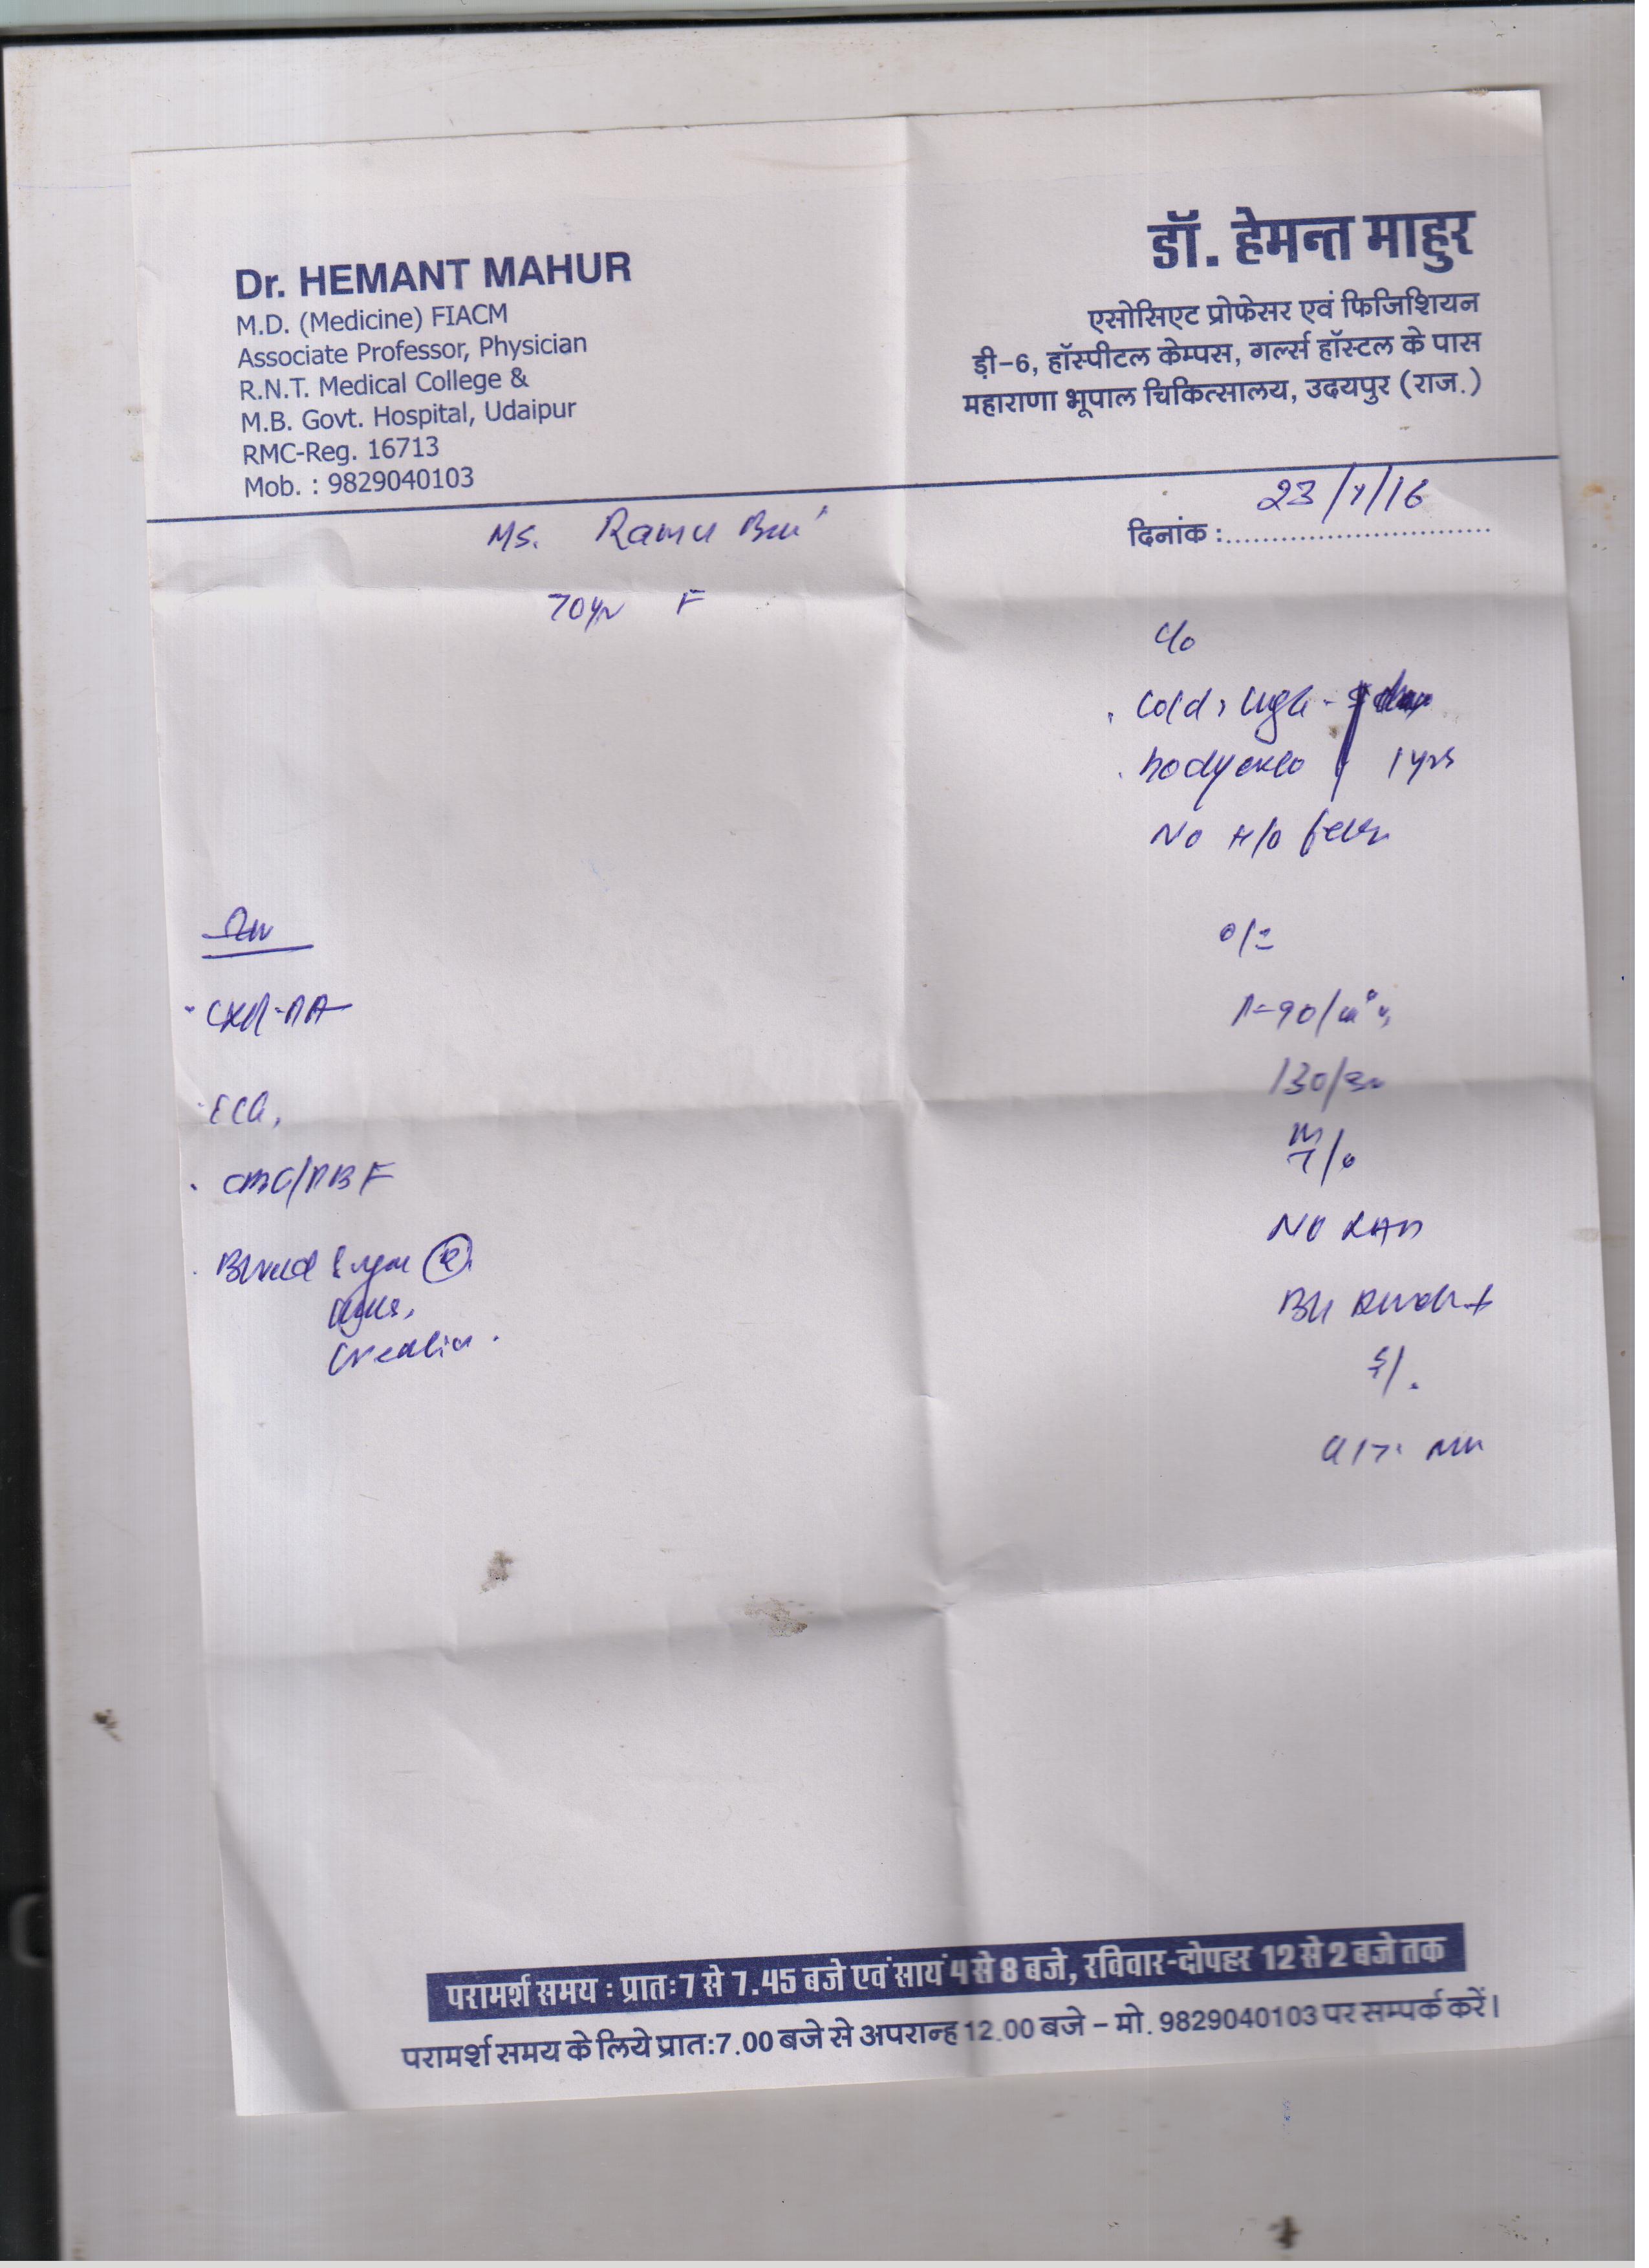 Dr. HEMANT MAHUR
M.D. (Medicine) FIACM
Associate Professor, Physician
R.N.T. Medical College &
M.B. Govt. Hospital, Udaipur
RMC-Reg. 16713
Mob. : 9829040103
डॉ. हेमन्त माहुर
एसोसिएट प्रोफेसर एवं फिजिशियन
ड़ी-6, हॉस्पीटल केम्पस, गर्ल्स हॉस्टल के पास
महाराणा भूपाल चिकित्सालय, उदयपुर (राज.)
दिनांक : 23/1/16
Ms. Ramu
70yr F
C/o
Cold, Cough
1 yrs
No H/o fever
O/E
P=90/min
130/
No
CXR-PA
ECG,
CBC/PBF
Blood Sugar (R)
Creatinin.
परामर्श समय : प्रातः 7 से 7.45 बजे एवं सायं 4 से 8 बजे, रविवार-दोपहर 12 से 2 बजे तक
परामर्श समय के लिये प्रात:7.00 बजे से अपरान्ह 12.00 बजे – मो. 9829040103 पर सम्पर्क करें।